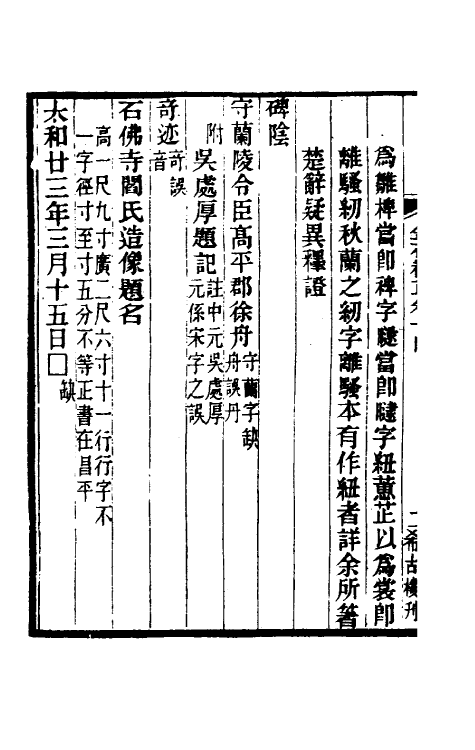 爲雛椑當卽裨字䞃當卽䟆字紐蕙茝以爲裳卽
離騷紉秋蘭之紉字離騷本有作紐者詳余所箸
楚辭疑異釋證
碑陰
守蘭陵令臣高平郡徐舟守蘭字缺舟誤丹
附吳處厚題記註中元吳處厚元係宋字之誤
奇迹奇誤音
石佛寺閻氏造像題名
高一尺九寸廣二尺六寸十一行行字不
一字徑寸至寸五分不等正書在昌平
太和廿三年三月十五日□缺
希古樓刊